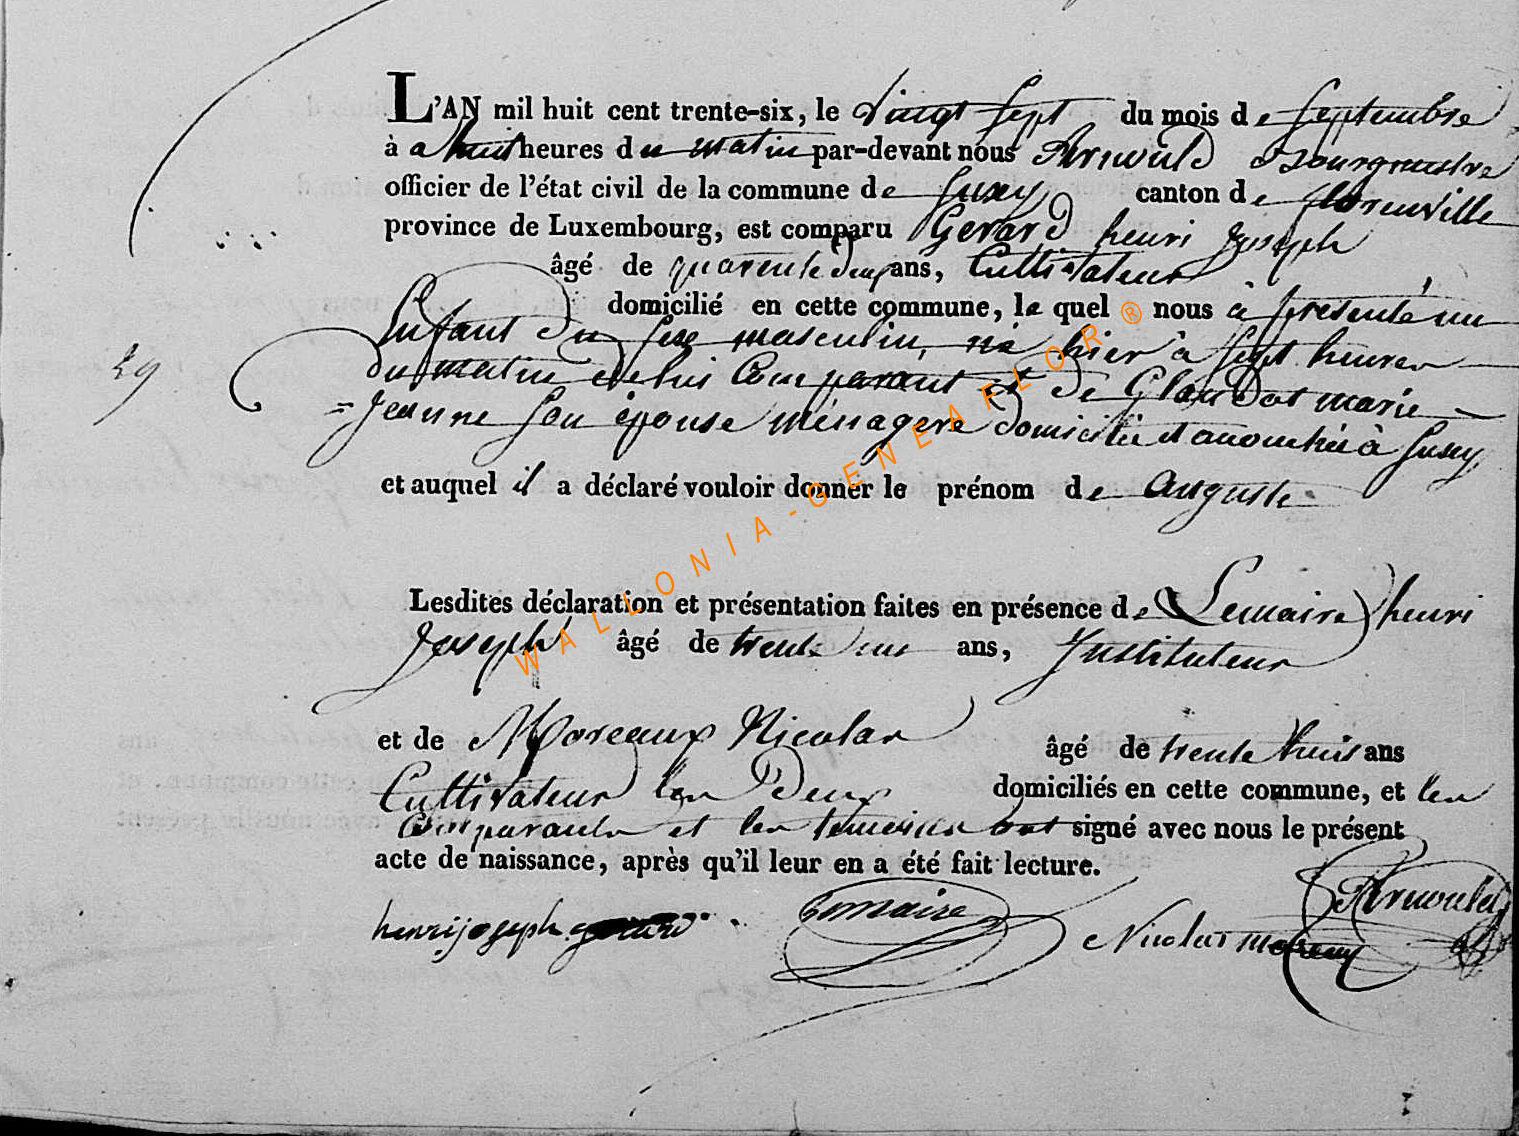 L'AN mil huit cent trente-six, le vingt sept du mois de Septembre
à huit heures du matin par-devant nous Arnould Bourgmestre
officier de l'état civil de la commune de Suxy canton de florenville
province de Luxembourg, est comparu Gerard henri Joseph
âgé de quarente deux ans, Cultivateur
domicilié en cette commune, le quel nous à présenté un
Enfant du sexe masculin, né hier à sept heures
29
du matin de lui Comparant et de Claudot marie
=Jeanne son épouse ménagere domiciliée et accouchée à Suxy,
et auquel il a déclaré vouloir donner le prénom de auguste
WALLONIA-GENEAFLOR®
Lesdites déclaration et présentation faites en présence de Lemaire henri
Joseph âgé de trente ans, Instituteur
et de Moreaux Nicolas âgé de trente huit ans
Cultivateur les deux domiciliés en cette commune, et les
comparants et les temoins ont signé avec nous le présent
acte de naissance, après qu'il leur en a été fait lecture.
henri joseph gerard Lemaire Nicolas moreaux Arnould